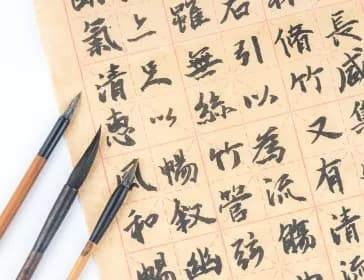 長咸
脩竹又有清
右引以為流觴
雖無絲竹管弦
足以暢敘幽
氣清惠風和暢